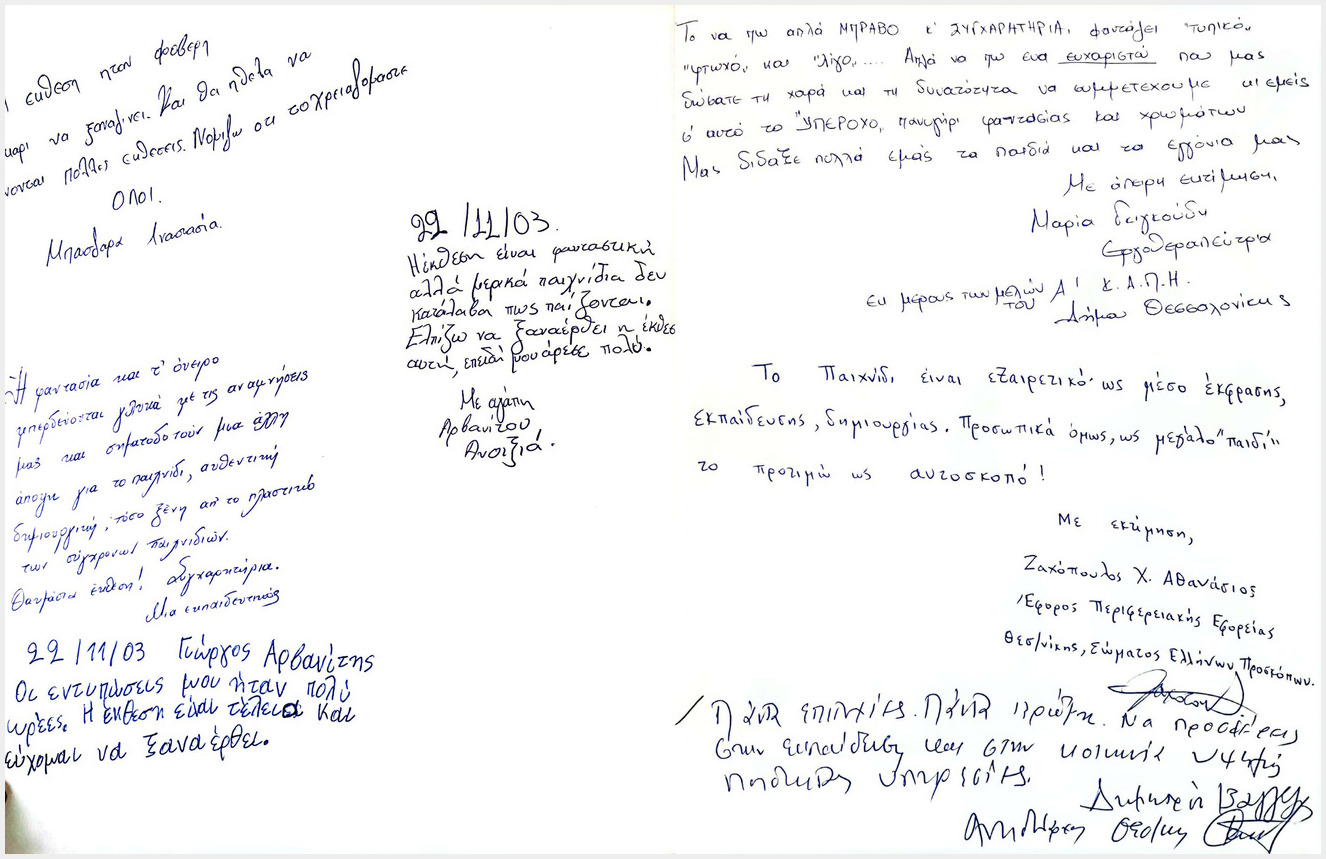 εκθεση ηταν φοβερη
να ξαναγινει. Και θα ηθελα να
πολλες εκθεσεις. Νομιζω οτι το χρειαζομαστε
ΟΛΟΙ.
Αναστασία.
22/11/03.
Η έκθεση είναι φανταστική
αλλά μερικά παιχνίδια δεν
κατάλαβα πως παίζονται.
Ελπίζω να ξαναέρθει η έκθεσ
αυτή, επειδή μου άρεσε πολύ.
Με αγάπη
Αρβανίτου
Ανοιξιά.
Η φαντασία και τ' όνειρο
μπερδεύονται γλυκά με τις αναμνήσεις
μας και σηματοδοτούν μια άλλη
άποψη για το παιχνίδι, αυθεντική
δημιουργική, τόσο ξένη απ' το πλαστικό
των σύγχρονων παιχνιδιών.
Θαυμάσια έκθεση! Συγχαρητήρια.
Μια εκπαιδευτικός
22/11/03 Γιώργος Αρβανίτης
Οι εντυπώσεις μου ήταν πολύ
ωρέες. Η έκθεση είναι τέλεια και
εύχομαι να ξαναέρθει.
Το να πω απλά ΜΠΡΑΒΟ κ' ΣΥΓΧΑΡΗΤΗΡΙΑ, φαντάζει "τυπικό"
"φτωχό" και "λίγο".... Απλά να πω ένα ευχαριστώ που μας
δώσατε τη χαρά και τη δυνατότητα να συμμετέχουμε κι εμείς
σ' αυτό το "ΥΠΕΡΟΧΟ" πανυγήρι φαντασίας και χρωμάτων
Μας δίδαξε πολλά εμάς τα παιδιά και τα εγγόνια μας
Με άπειρη εκτίμηση,
Μαρία
Εργοθεραπεύτρια
εκ μέρους των μελών του Α' Κ.Α.Π.Η.
Δήμου Θεσσαλονίκης
Το Παιχνίδι είναι εξαιρετικό ως μέσο έκφρασης,
εκπαίδευσης, δημιουργίας. Προσωπικά όμως, ως μεγάλο "παιδί"
το προτιμώ ως αυτοσκοπό!
Με εκτίμηση,
Ζαχόπουλος Χ. Αθανάσιος
Έφορος Περιφερειακής Εφορείας
Θεσ/νίκης, Σώματος Ελλήνων Προσκόπων.
Πάντα επιτυχίες. Πάντα πρώτη. Να προσφέρεις
στην εκπαίδευση και στην κοινωνία υψηλής
ποιότητας υπηρεσίες.